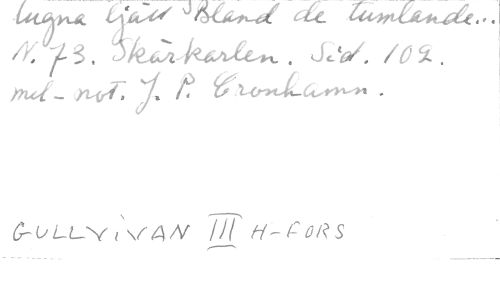 lugna tjäll "Bland de tumlande...
N. 73. Skärkarlen. Sid. 102.
mel-not. J. P. Cronhamn.
GULLViVAN III H-FORS